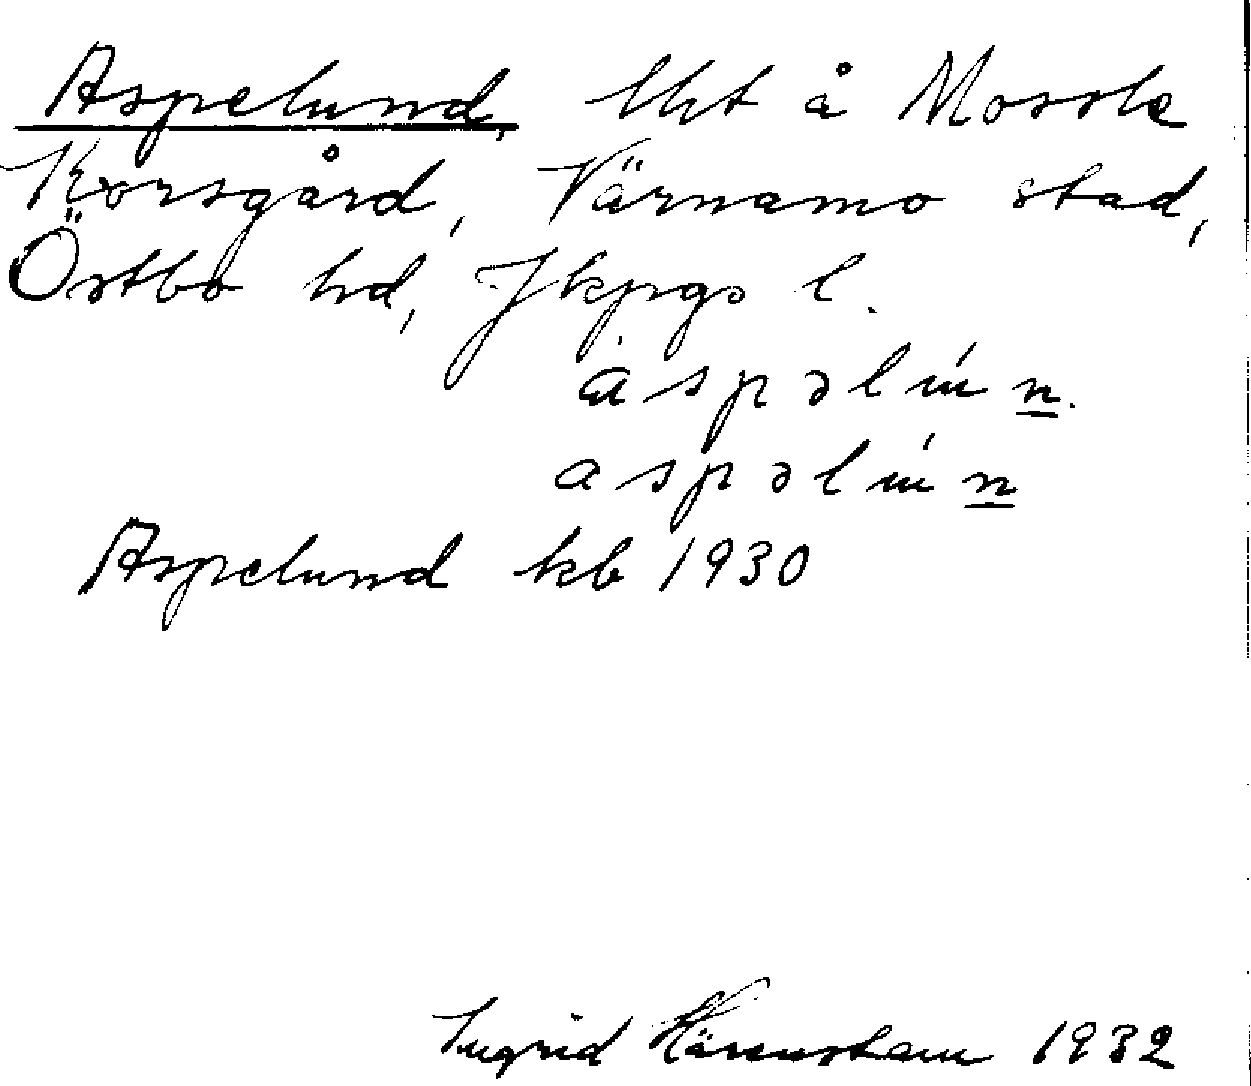 Aspelund, lht å Mossle
Korsgård, Värnamo stad,
Östbo hd, Jkpgs l.
àspəlún.
aspəlún
Aspelund kb 1930
Ingrid Härenstam 1932